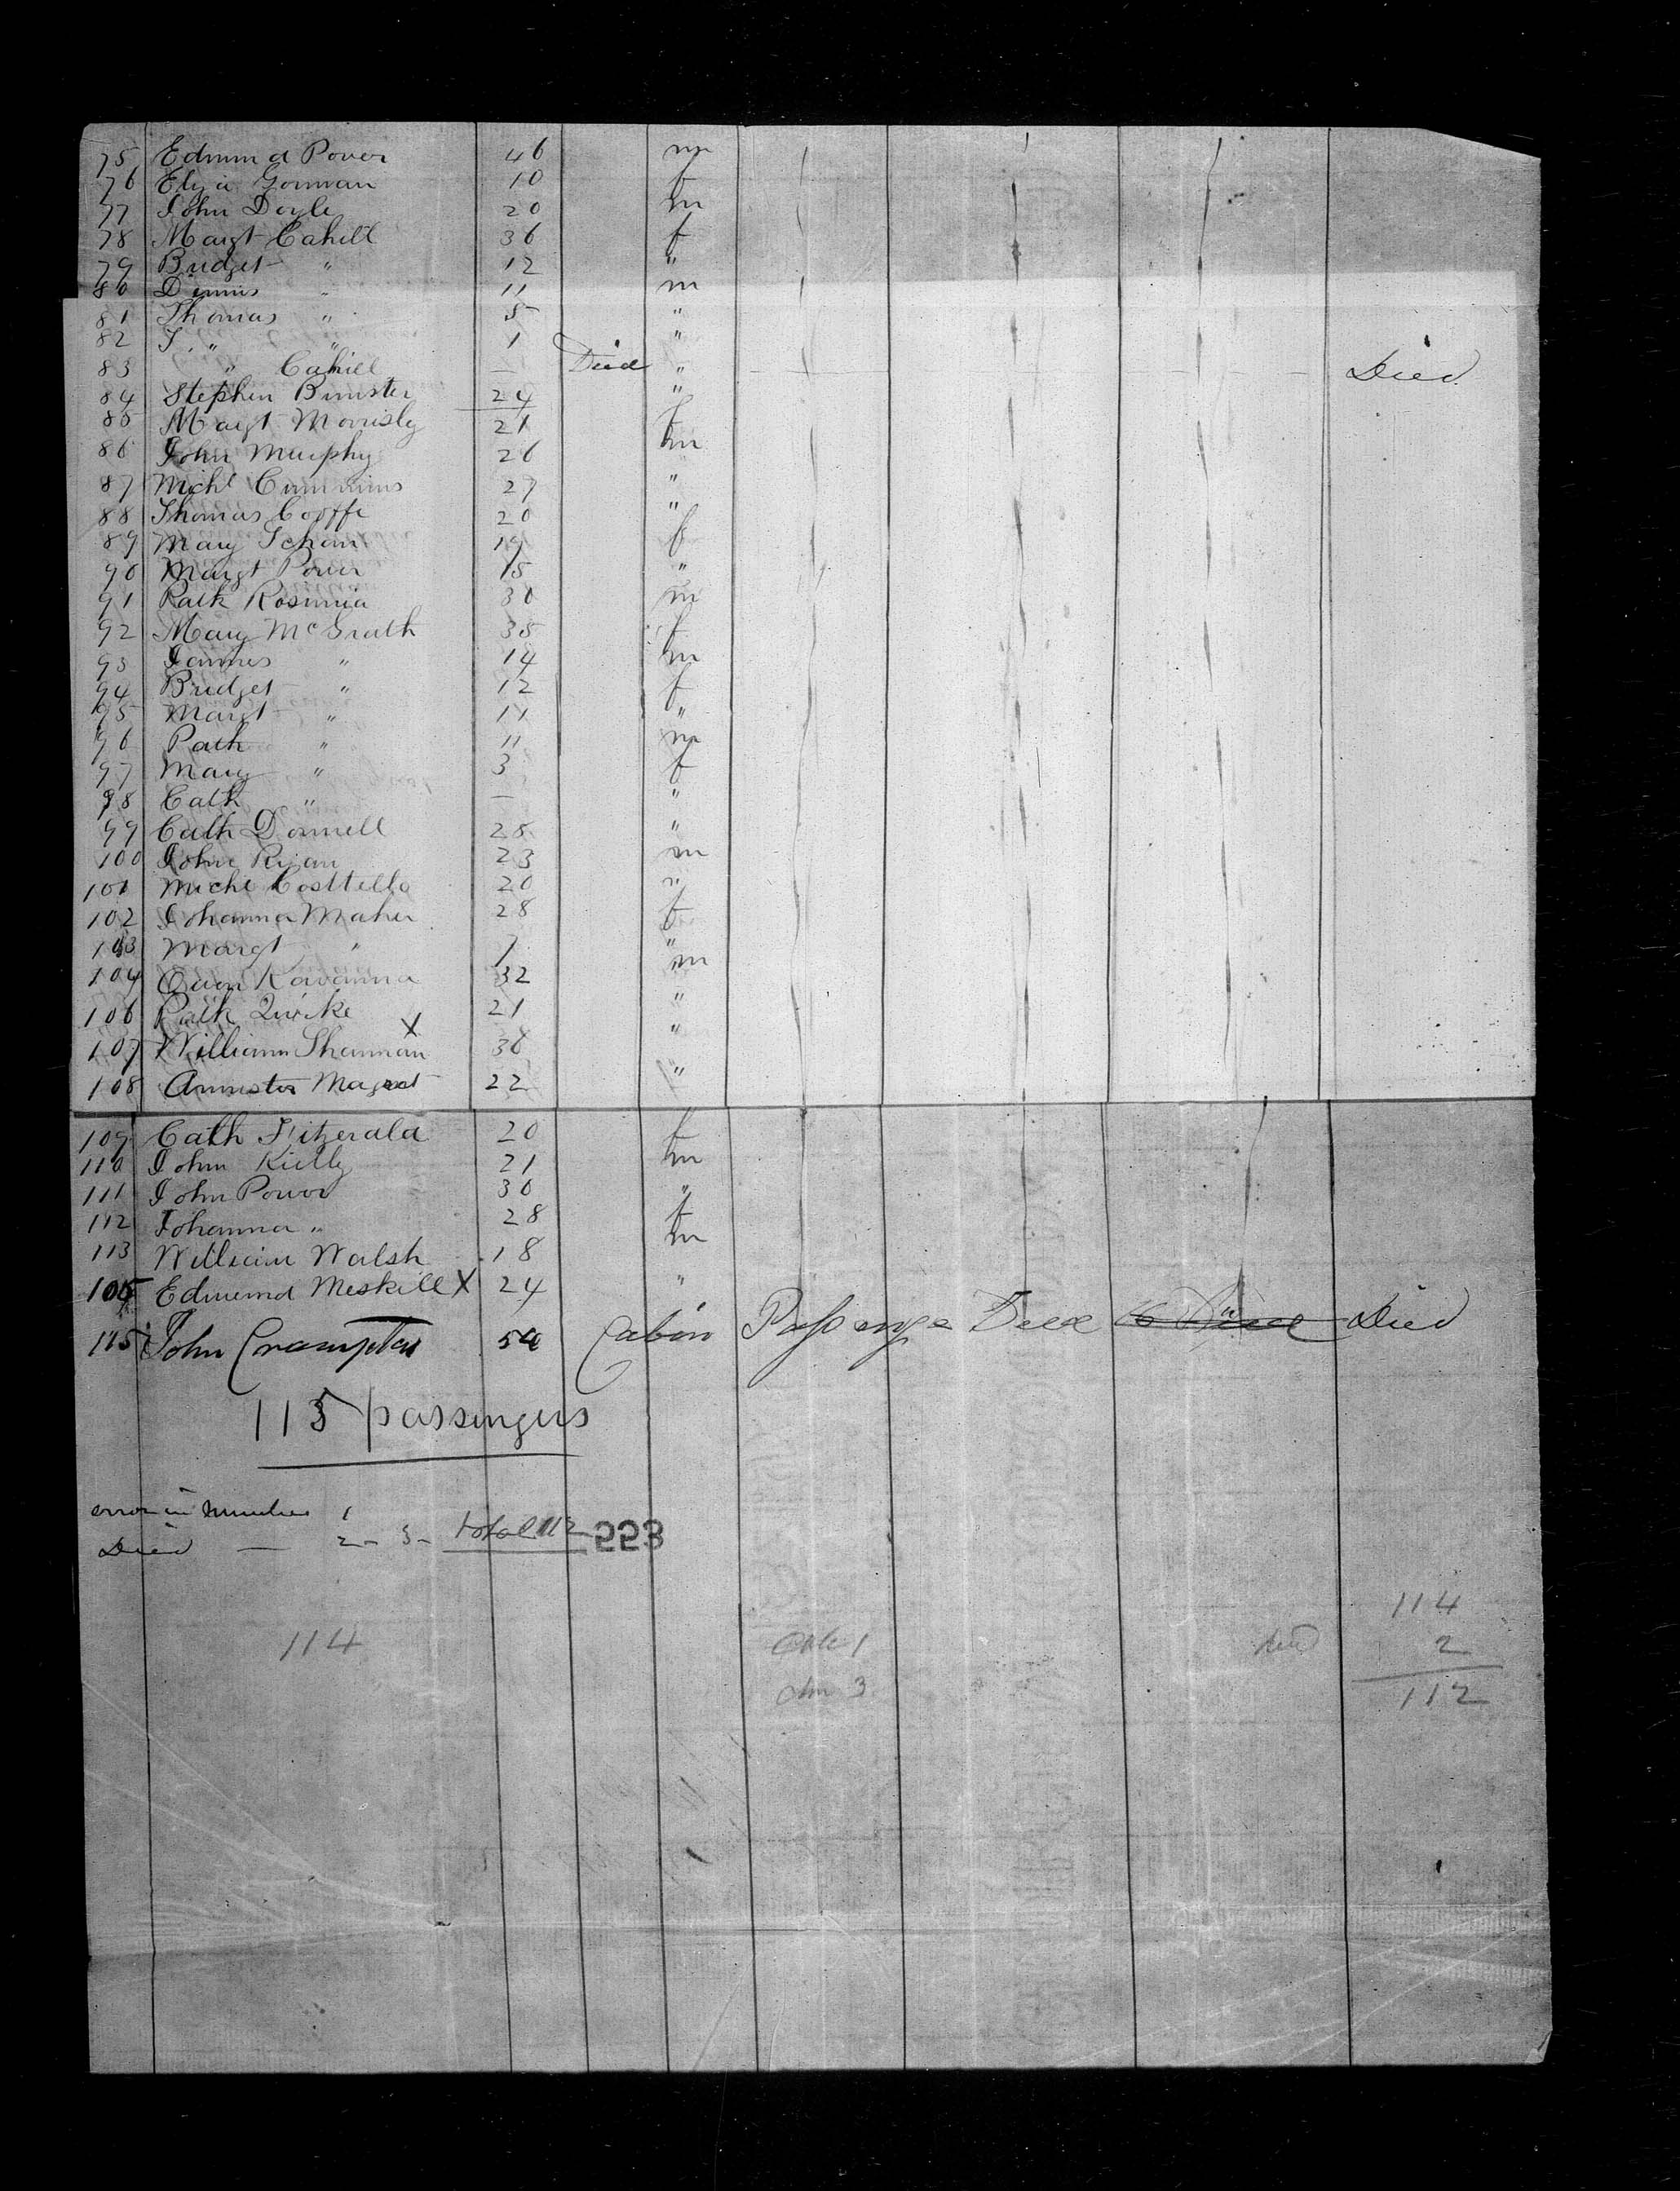 75 Edmund Power 46 m
76 Eliza Gorman 10 f
77 John Doyle 20 m
78 Margt Cahill 36 f
79 Bridget " 12 "
80 Dennis " 11 m
81 Thomas " 5 "
82 J " " 1 "
83 " Cahill — Died " Died
84 Stephen 24 "
85 Margt 21 f
86 John Murphy 26 m
87 Michl Cummins 27 "
88 Thomas 20 "
89 Mary 19 f
90 Margt Power 15 "
91 Patk 30 m
92 Mary McGrath 35 f
93 James " 14 m
94 Bridget " 12 f
95 Margt " 11 "
96 Path " 11 m
97 Mary " 3 f
98 Cath " — "
99 Cath Donnell 25 "
100 John Ryan 23 m
101 Michl Costtello 20 "
102 Johanna Maher 28 f
103 Margt " 1 "
104 Owen Kavanna 32 m
106 Path Quirke 21 "
107 William Shannan X 30 "
108 22 "
109 Cath Fitzerald 20 f
110 John Kielly 21 m
111 John Power 30 "
112 Johanna " 28 f
113 William Walsh 18 m
105 Edmund Meskill X 24 "
115 John Crampton 54 Cabin Passenge Died
115 passengers
error in Number 1
Died — 2 - 3 - total 112
223
114
114
died 2
112